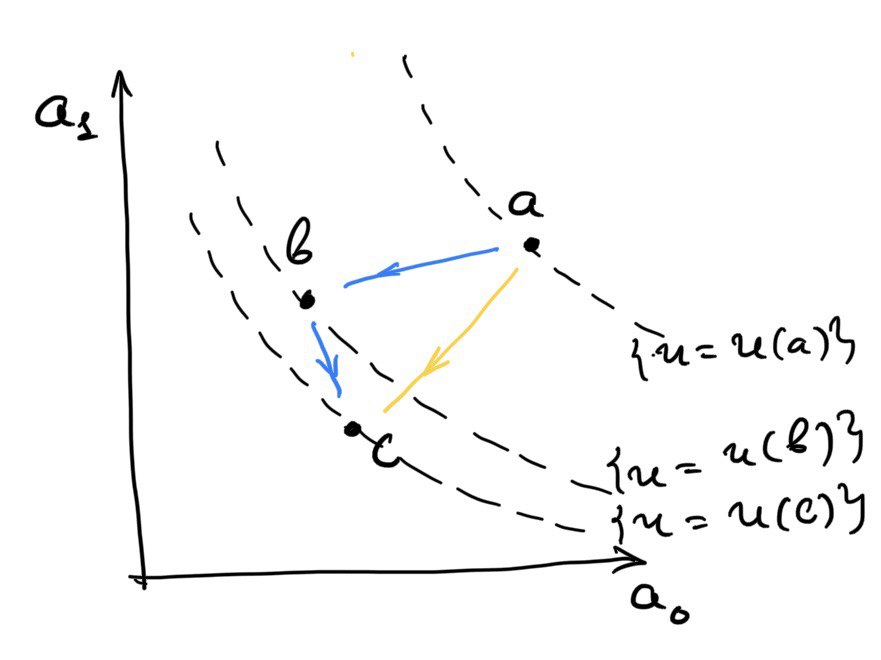 a₁
a
b
{u = u(a)}
c
{u = u(b)}
{u = u(c)}
a₀